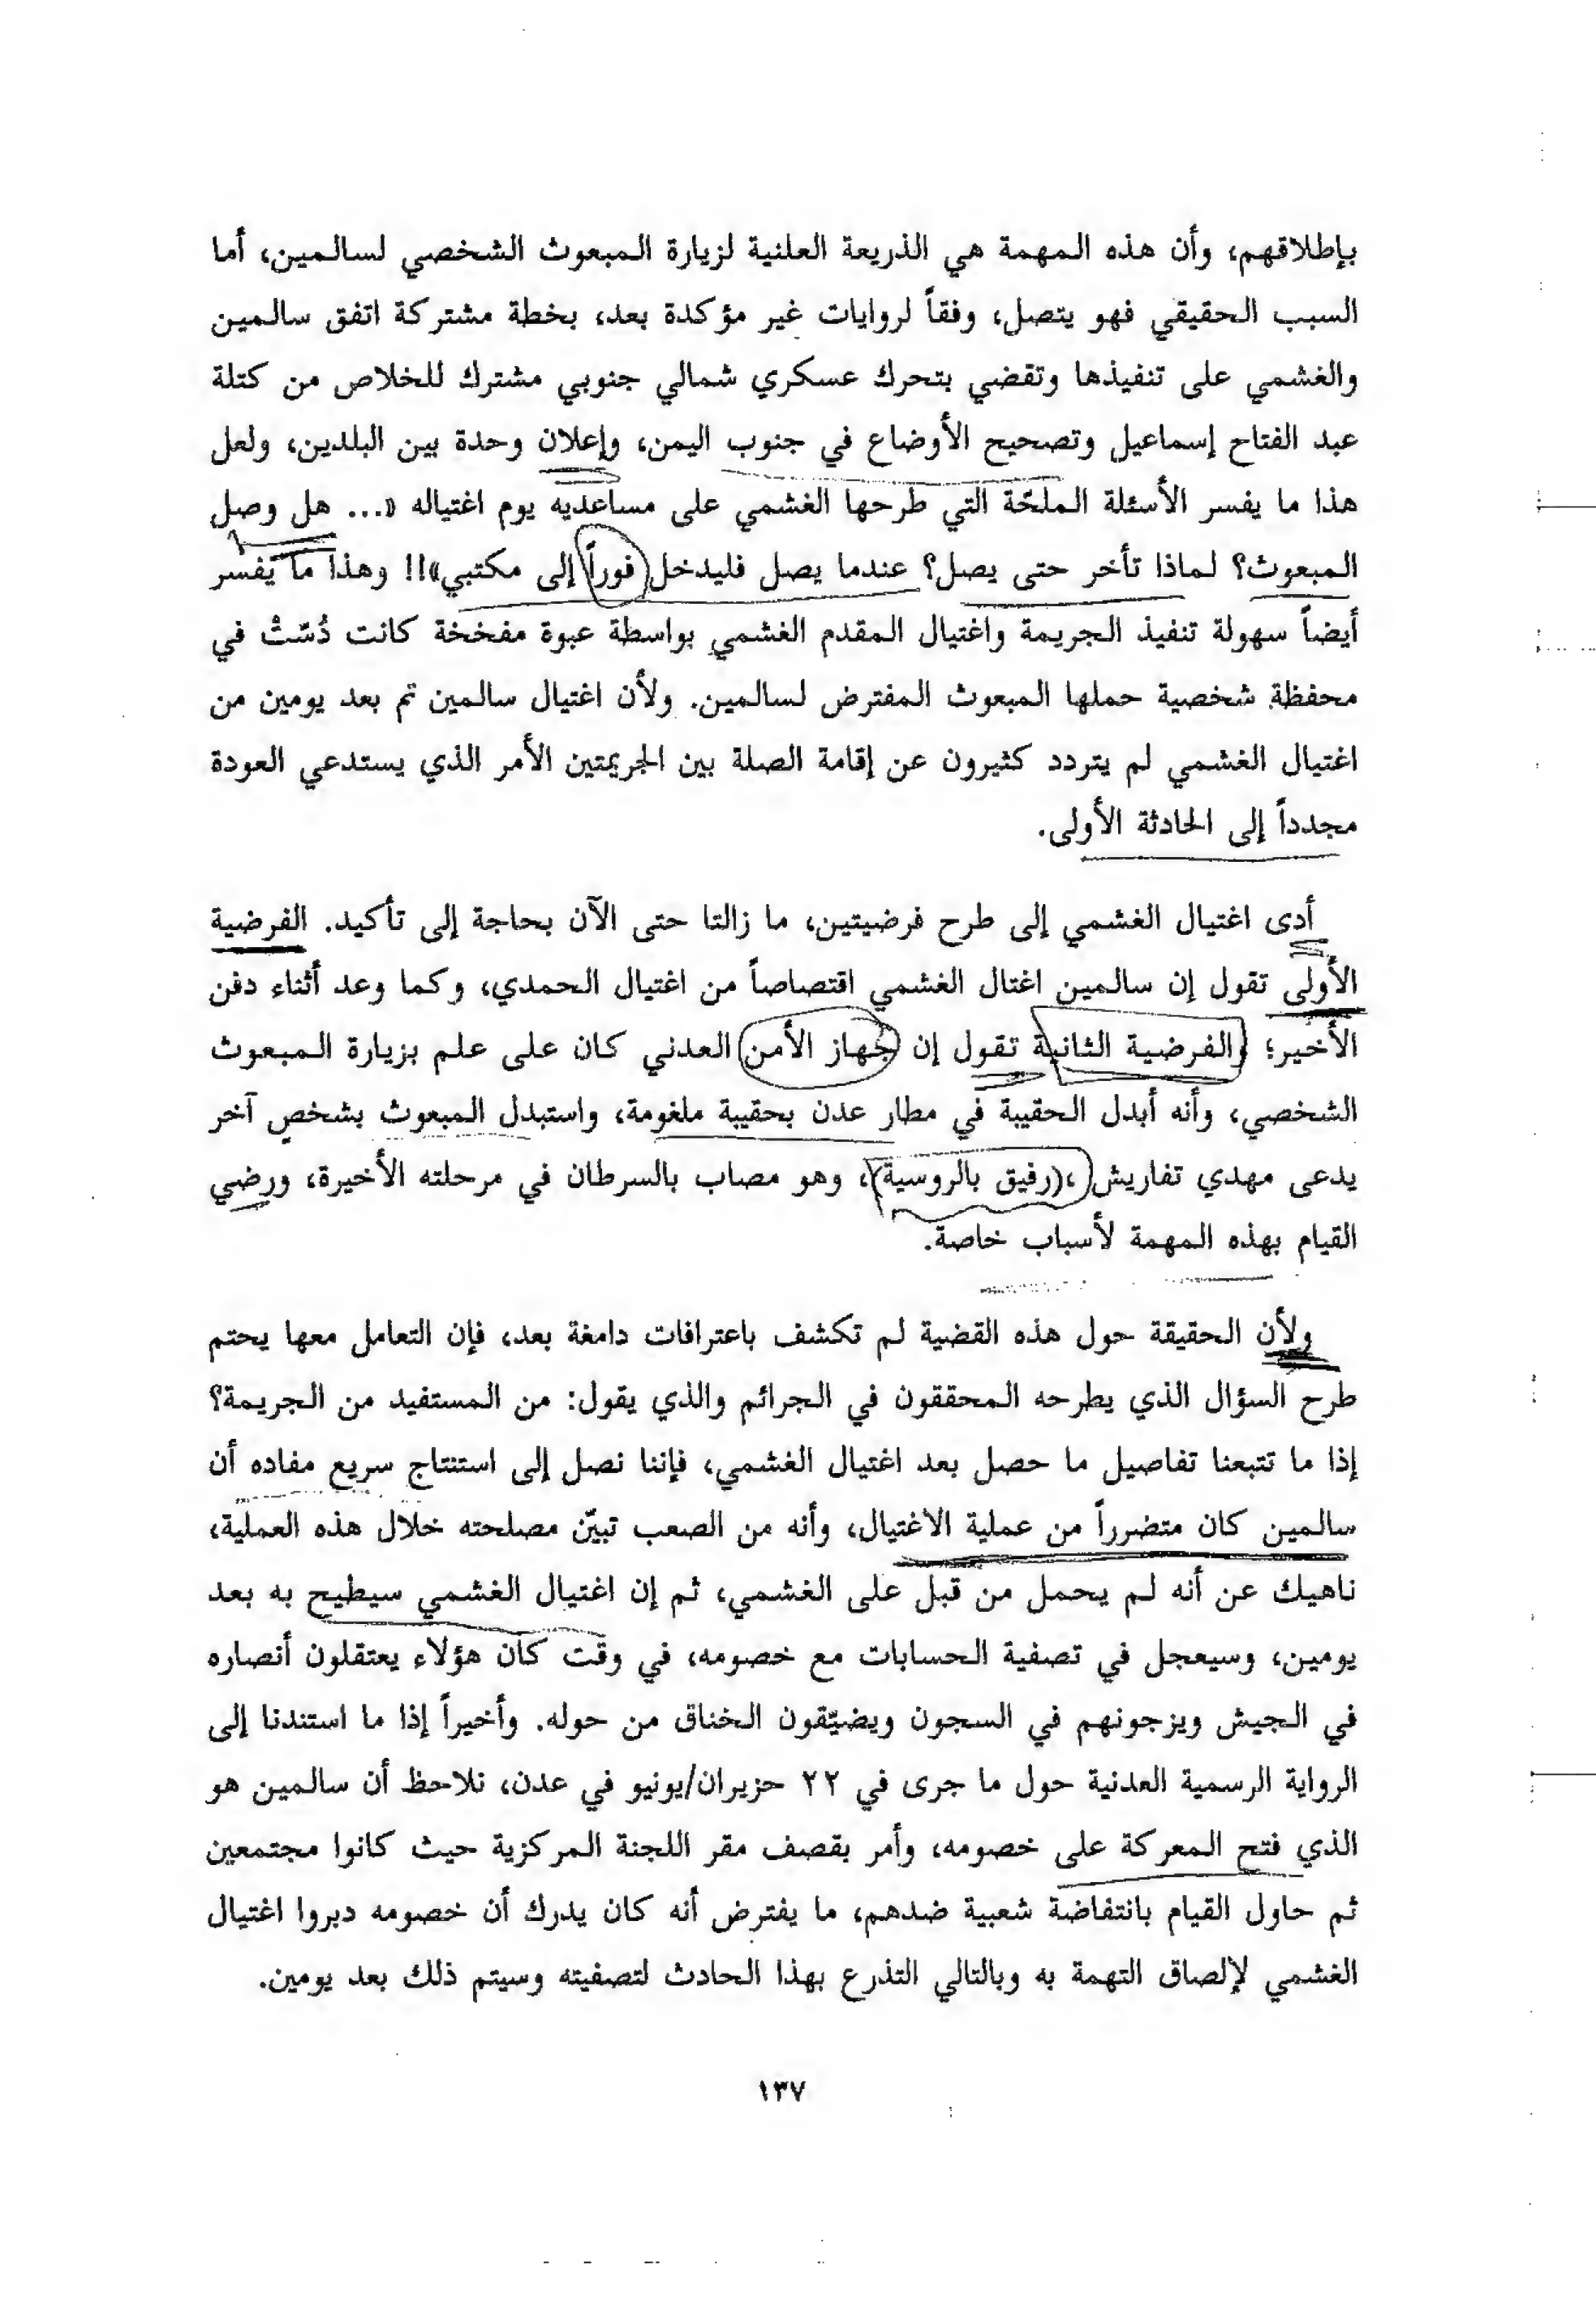 بإطلاقهم، وأن هذه المهمة هي الذريعة العلنية لزيارة المبعوث الشخصي لسالمين، أما
السبب الحقيقي فهو يتصل، وفقاً لروايات غير مؤكدة بعد، بخطة مشتركة اتفق سالمين
والغشمي على تنفيذها وتقضي بتحرك عسكري شمالي جنوبي مشترك للخلاص من كتلة
عبد الفتاح إسماعيل وتصحيح الأوضاع في جنوب اليمن، وإعلان وحدة بين البلدين، ولعل
هذا ما يفسر الأسئلة الملحّة التي طرحها الغشمي على مساعديه يوم اغتياله «... هل وصل
المبعوث؟ لماذا تأخر حتى يصل؟ عندما يصل فليدخل فوراً إلى مكتبي»!! وهذا ما يفسر
أيضاً سهولة تنفيذ الجريمة واغتيال المقدم الغشمي بواسطة عبوة مفخخة كانت دُسّتْ في
محفظة شخصية حملها المبعوث المفترض لسالمين. ولأن اغتيال سالمين تم بعد يومين من
اغتيال الغشمي لم يتردد كثيرون عن إقامة الصلة بين الجريمتين الأمر الذي يستدعي العودة
مجدداً إلى الحادثة الأولى.
أدى اغتيال الغشمي إلى طرح فرضيتين، ما زالتا حتى الآن بحاجة إلى تأكيد. الفرضية
الأولى تقول إن سالمين اغتال الغشمي اقتصاصاً من اغتيال الحمدي، وكما وعد أثناء دفن
الأخير؛ والفرضية الثانية تقول إن جهاز الأمن العدني كان على علم بزيارة المبعوث
الشخصي، وأنه أبدل الحقيبة في مطار عدن بحقيبة ملغومة، واستبدل المبعوث بشخصٍ آخر
يدعى مهدي تفاريش، (رفيق بالروسية)، وهو مصاب بالسرطان في مرحلته الأخيرة، ورضي
القيام بهذه المهمة لأسباب خاصة.
ولأن الحقيقة حول هذه القضية لم تكشف باعترافات دامغة بعد، فإن التعامل معها يحتم
طرح السؤال الذي يطرحه المحققون في الجرائم والذي يقول: من المستفيد من الجريمة؟
إذا ما تتبعنا تفاصيل ما حصل بعد اغتيال الغشمي، فإننا نصل إلى استنتاج سريع مفاده أن
سالمين كان متضرراً من عملية الاغتيال، وأنه من الصعب تبيّن مصلحته خلال هذه العملية،
ناهيك عن أنه لم يحمل من قبل على الغشمي، ثم إن اغتيال الغشمي سيطيح به بعد
يومين، وسيعجل في تصفية الحسابات مع خصومه، في وقت كان هؤلاء يعتقلون أنصاره
في الجيش ويزجونهم في السجون ويضيّقون الخناق من حوله. وأخيراً إذا ما استندنا إلى
الرواية الرسمية العدنية حول ما جرى في ٢٢ حزيران/يونيو في عدن، نلاحظ أن سالمين هو
الذي فتح المعركة على خصومه، وأمر بقصف مقر اللجنة المركزية حيث كانوا مجتمعين
ثم حاول القيام بانتفاضة شعبية ضدهم، ما يفترض أنه كان يدرك أن خصومه دبروا اغتيال
الغشمي لإلصاق التهمة به وبالتالي التذرع بهذا الحادث لتصفيته وسيتم ذلك بعد يومين.
١٣٧